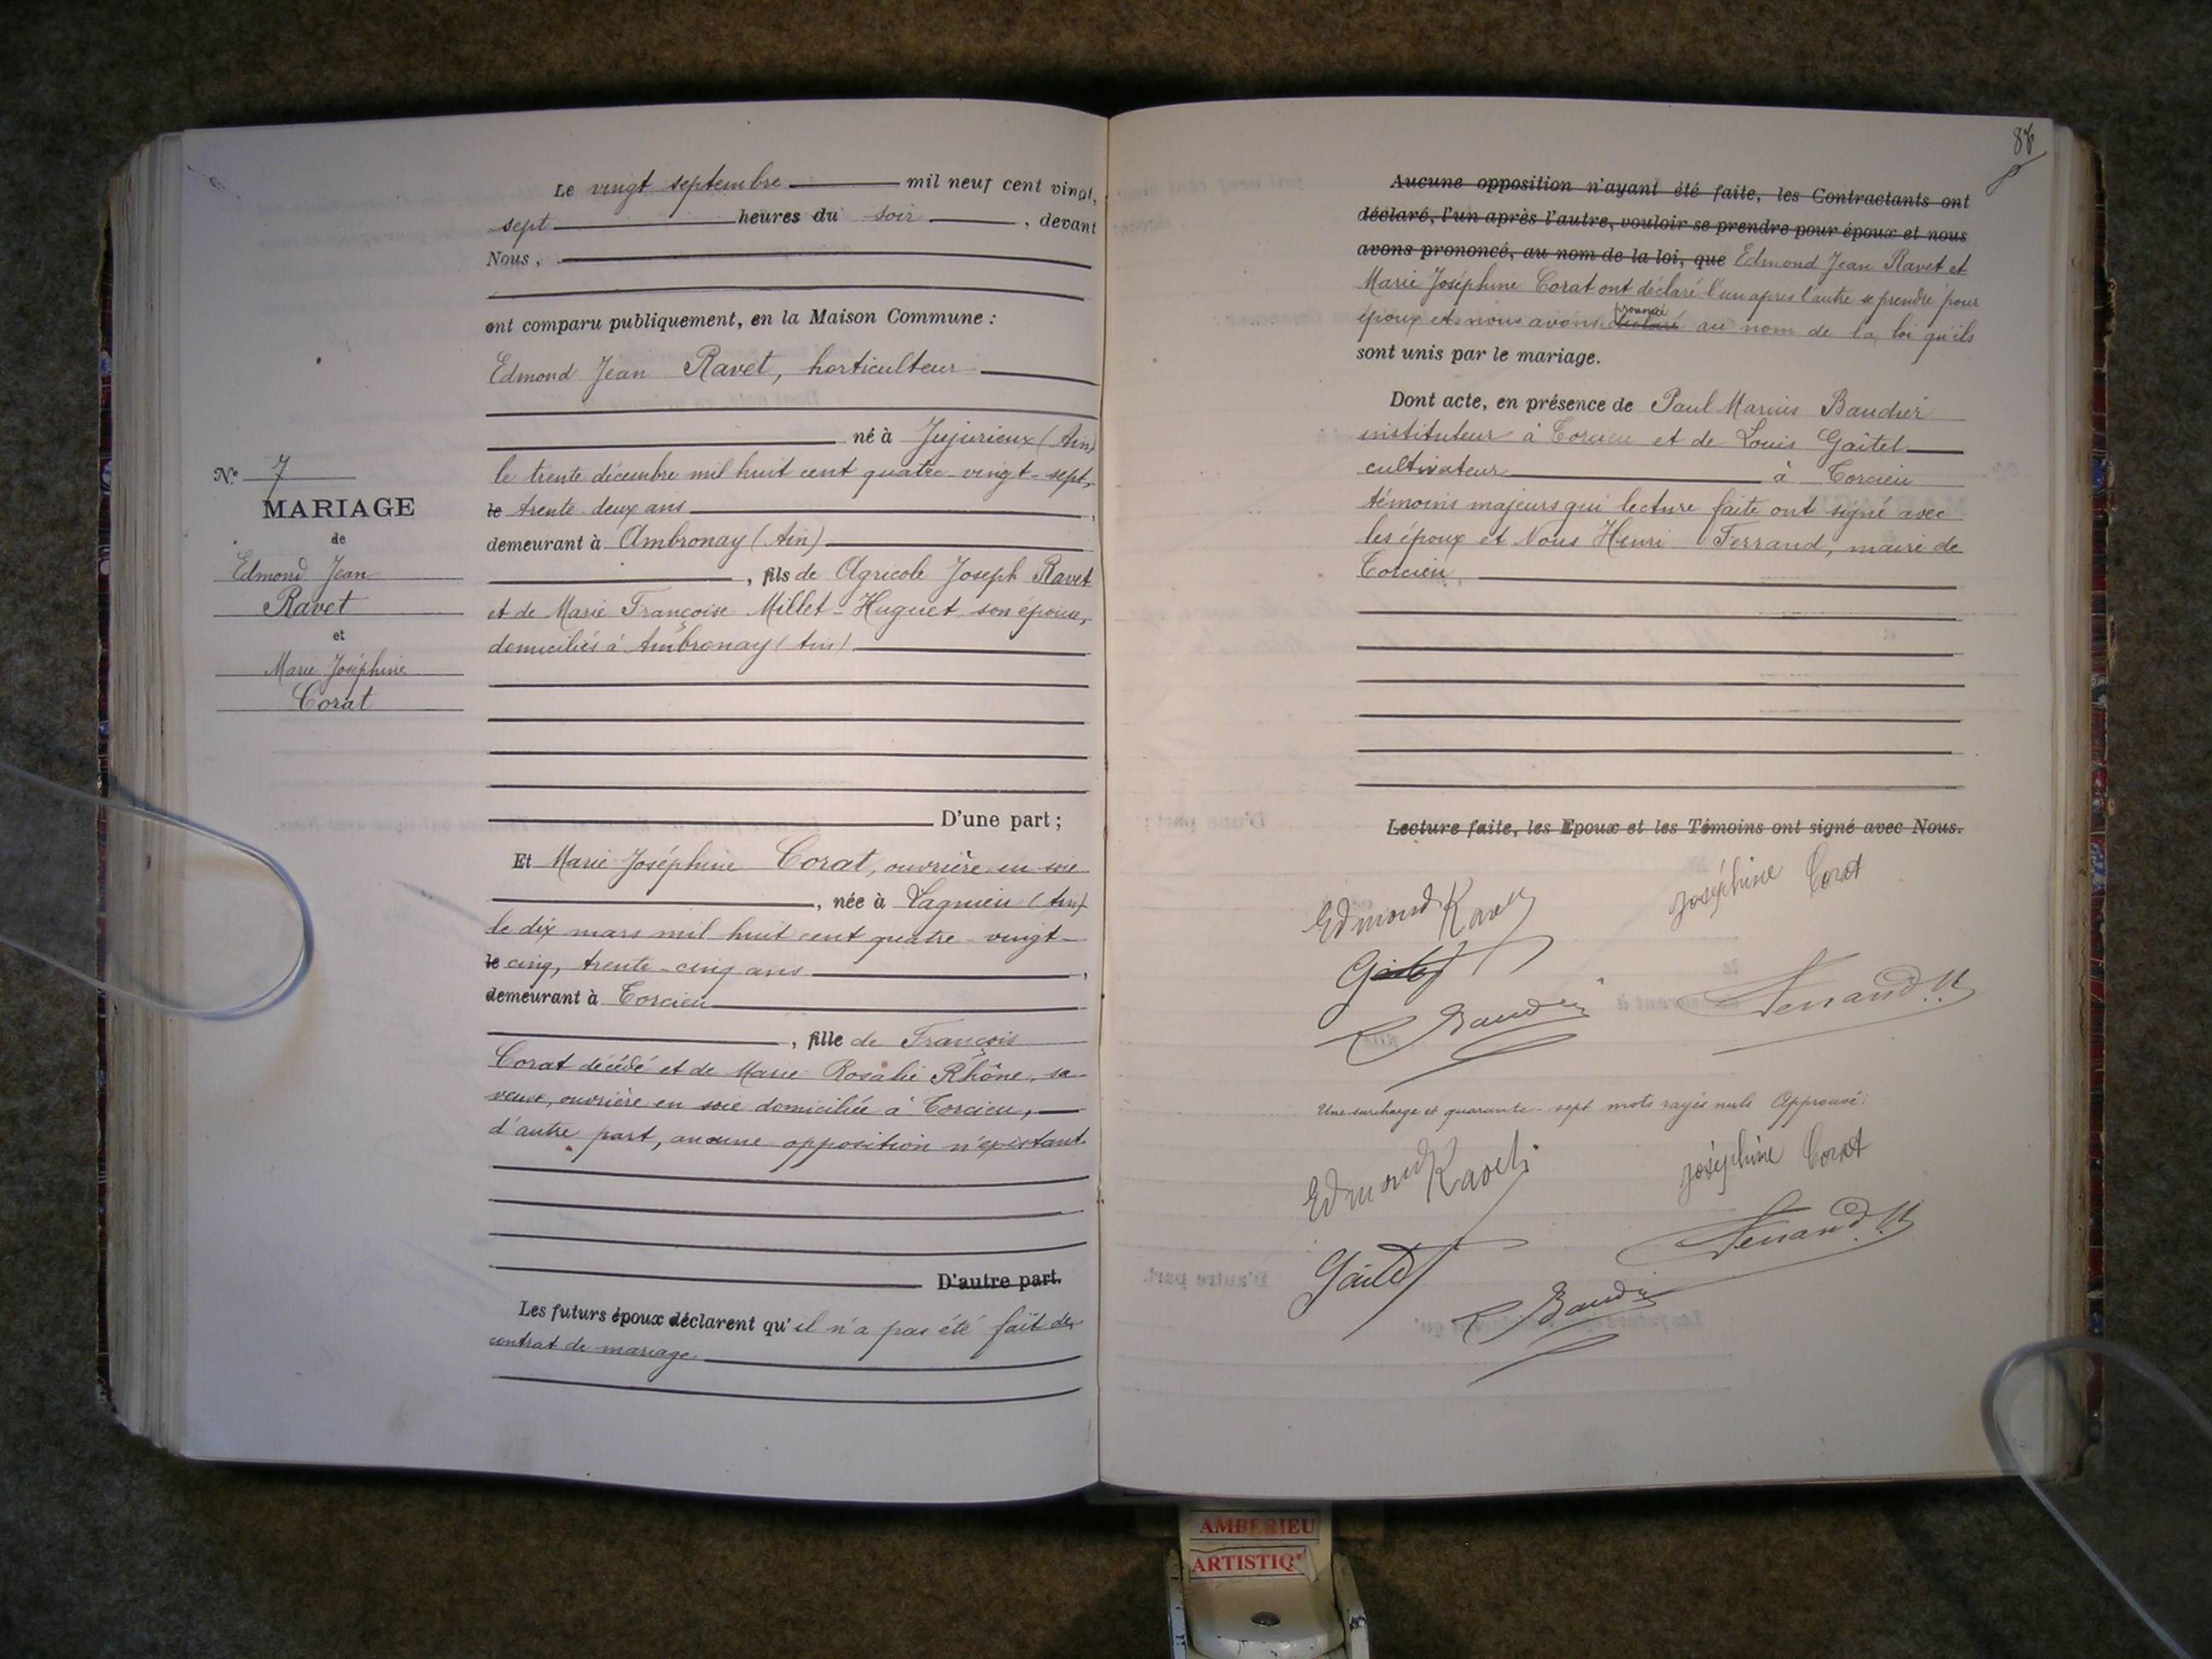 Le vingt septembre mil neuf cent vingt,
sept heures du soir, devant
Nous,
ont comparu publiquement, en la Maison Commune :
Edmond Jean Ravet, horticulteur
né à Jujurieux (Ain)
le trente décembre mil huit cent quatre-vingt-sept,
le trente-deux ans,
demeurant à Ambronay (Ain)
, fils de Agricole Joseph Ravet
et de Marie Françoise Millet-Huguet, son épouse,
domiciliés à Ambronay (Ain)
D'une part ;
N° 7
MARIAGE
de
Edmond Jean
Ravet
et
Marie Joséphine
Corat
Et Marie Joséphine Corat, ouvrière en soie
, née à Lagnieu (Ain)
le dix mars mil huit cent quatre-vingt-
le cinq, trente-cinq ans,
demeurant à Torcieu
, fille de François
Corat décédé et de Marie Rosalie Rhône, sa
veuve, ouvrière en soie domiciliée à Torcieu,
d'autre part, aucune opposition n'existant
D'autre part.
Les futurs époux déclarent qu'il n'a pas été fait de
contrat de mariage
87
Aucune opposition n'ayant été faite, les Contractants ont
déclaré, l'un après l'autre, vouloir se prendre pour époux et nous
avons prononcé, au nom de la loi, que Edmond Jean Ravet et
Marie Joséphine Corat ont déclaré l'un après l'autre se prendre pour
prononcé
époux et nous avons déclaré au nom de la loi qu'ils
sont unis par le mariage.
Dont acte, en présence de Paul Marius Baudier
instituteur à Torcieu et de Louis Gaîtet
cultivateur à Torcieu
témoins majeurs qui lecture faite ont signé avec
les époux et Nous Henri Ferrand, maire de
Torcieu.
Lecture faite, les Epoux et les Témoins ont signé avec Nous.
Edmond Ravet Joséphine Corat
Gaitet
Baudier Ferrand H
Une surcharge et quarante-sept mots rayés nuls Approuvé :
Edmond Ravet Joséphine Corat
Gaitet Ferrand H
Baudier
AMBERIEU
ARTISTIQ'